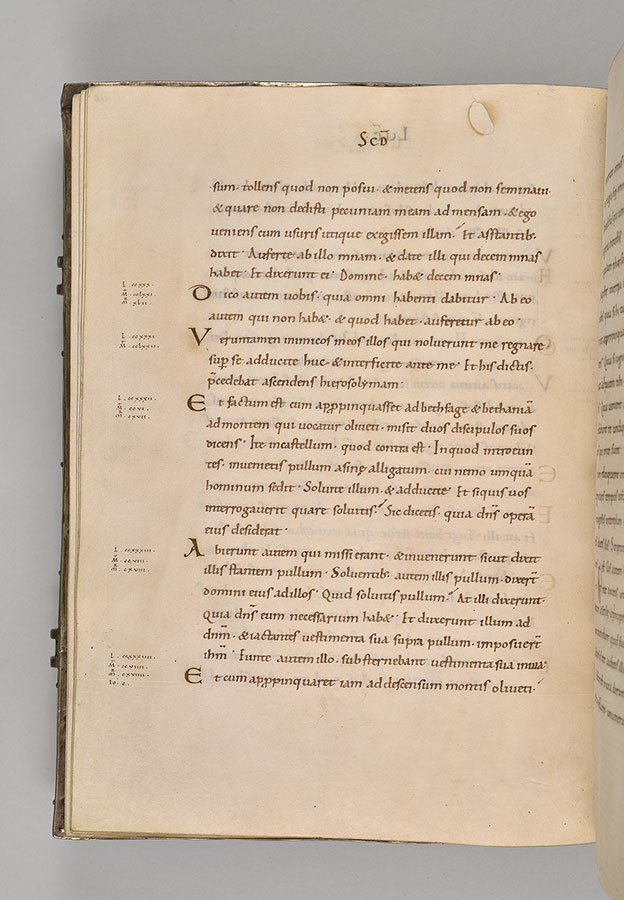 SCD
sum· tollens quod non posui· & metens quod non seminaui·
& quare non dedisti pecuniam meam ad mensam· & ego
ueniens cum usuris utique exegissem illam· Et asstantib;
dixit· Auferte ab illo mnam· & date illi qui decem mnas
habet· Et dixerunt ei· Domine· hab& decem mnas·
Dico autem uobis· quia omni habenti dabitur· Ab eo
autem qui non hab&· & quod habet· auferetur ab eo·
Veruntamen inimicos meos illos qui noluerunt me regnare
sup se· adducite huc· & interficite ante me· Et his dictis·
p̄cedebat ascendens hierosolymam:
Et factum est cum app̄pinquasset ad bethfage & bethaniā
ad montem qui uocatur oliueti· misit duos discipulos suos
dicens· Ite in castellum· quod contra est· In quod introeun
tes· inuenietis pullum asine alligatum· cui nemo umquā
hominum sedit· Soluite illum· & adducite· Et siquis uos
interrogauerit quare soluitis· Sic dicetis· quia dn̄s operā
eius desiderat·
Abierunt autem qui missi erant· & inuenerunt sicut dixit
illis stantem pullum· Soluentib; autem illis pullum· dixer̄t
domini eius ad illos· Quid soluitis pullum· At illi dixerunt·
Quia dn̄s eum necessarium hab&· Et duxerunt illum ad
dn̄m· & iactantes uestimenta sua supra pullum· imposuer̄t
ihm̄· Eunte autem illo· substernebant uestimenta sua in uia·
Et cum app̄pinquaret iam ad descensum montis oliueti·